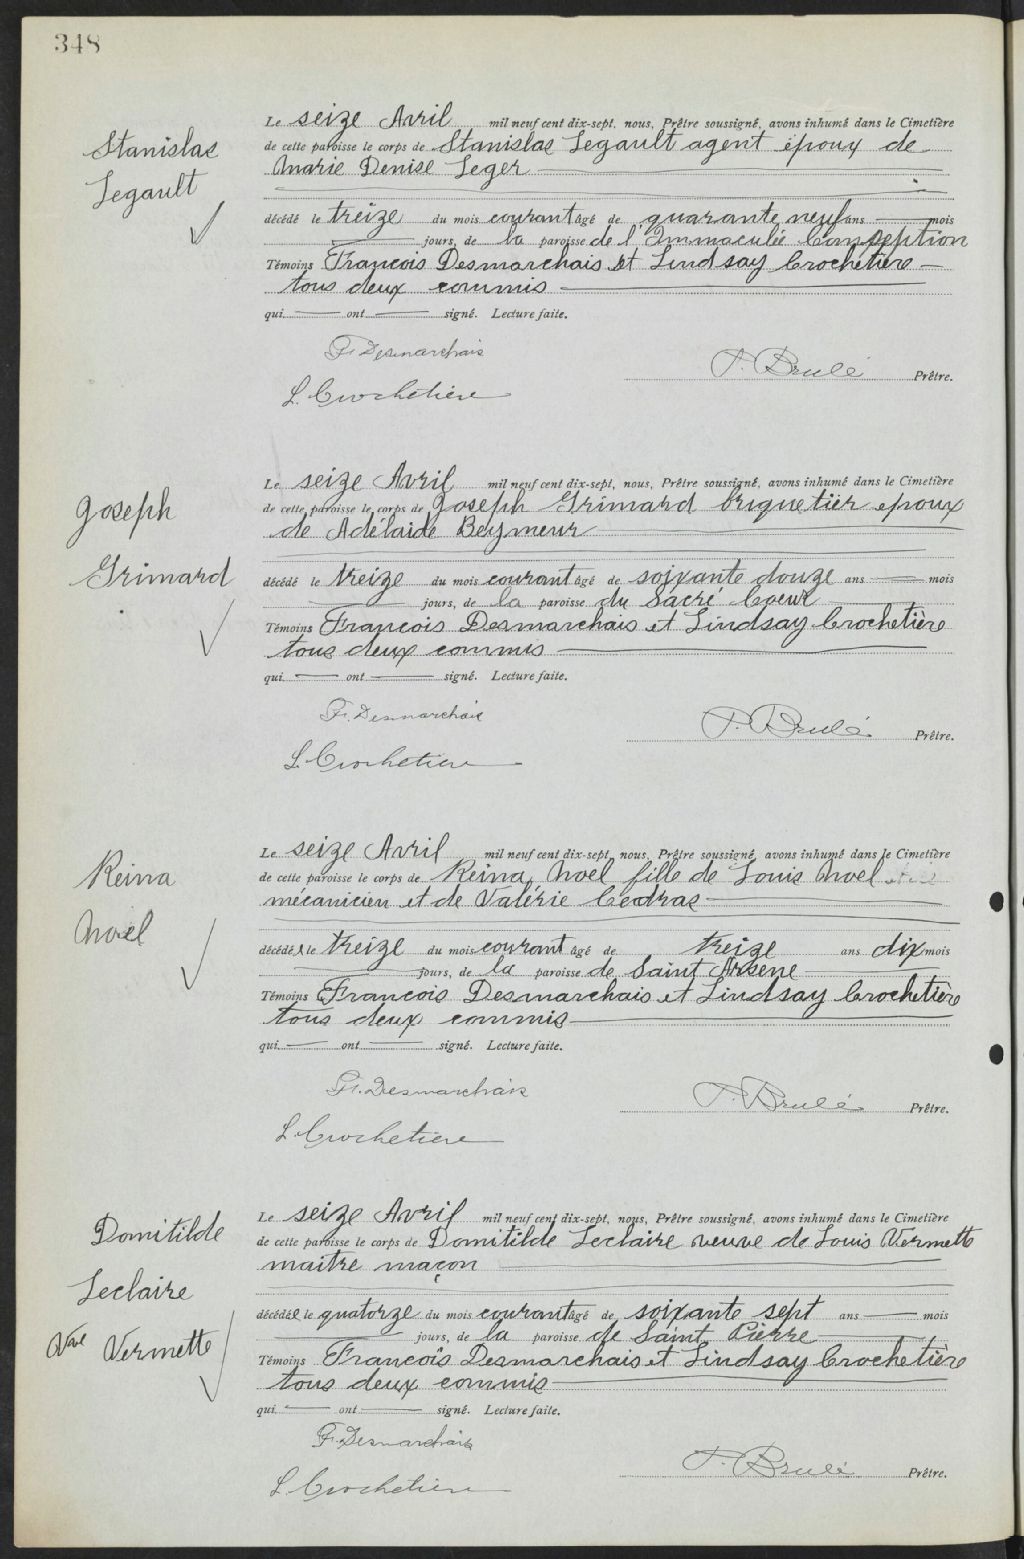 348
Stanislas
Legault
Le seize Avril mil neuf cent dix-sept, nous, Prêtre soussigné, avons inhumé dans le Cimetière
de cette paroisse le corps de Stanislas Legault agent époux de
Marie Denise Leger
décédé le treize du mois courant âgé de quarante neuf ans mois
jours, de la paroisse de l'Immaculée Conception
Témoins Francois Desmarchais et Lindsay Crochetière
tous deux commis
qui ont signé. Lecture faite.
Fr. Desmarchais
P. Brulé Prêtre.
L. Crochetière
Joseph
Grimard
Le seize Avril mil neuf cent dix-sept, nous, Prêtre soussigné, avons inhumé dans le Cimetière
de cette paroisse le corps de Joseph Grimard briquetier epoux
de Adélaide Beymeur
décédé le treize du mois courant âgé de soixante douze ans mois
jours, de la paroisse du Sacré Coeur
Témoins Francois Desmarchais et Lindsay Crochetière
tous deux commis
qui ont signé. Lecture faite.
Fr. Desmarchais
P. Brulé Prêtre.
L. Crochetiere
Reina
Noel
Le seize Avril mil neuf cent dix-sept, nous, Prêtre soussigné, avons inhumé dans le Cimetière
de cette paroisse le corps de Reina Noel fille de Louis Noel
mécanicien et de Valérie Cedras
décédée le treize du mois courant âgé de treize ans dix mois
jours, de la paroisse de Saint Arsene
Témoins Francois Desmarchais et Lindsay Crochetière
tous deux commis
qui ont signé. Lecture faite.
Fr. Desmarchais
P. Brulé Prêtre.
L. Crochetiere
Domitilde
Leclaire
Vve Vermette
Le seize Avril mil neuf cent dix-sept, nous, Prêtre soussigné, avons inhumé dans le Cimetière
de cette paroisse le corps de Domitilde Leclaire veuve de Louis Vermette
maitre maçon
décédée le quatorze du mois courant âgé de soixante sept ans mois
jours, de la paroisse de Saint Pierre
Témoins Francois Desmarchais et Lindsay Crochetière
tous deux commis
qui ont signé. Lecture faite.
Fr. Desmarchais
P. Brulé Prêtre.
L. Crochetiere